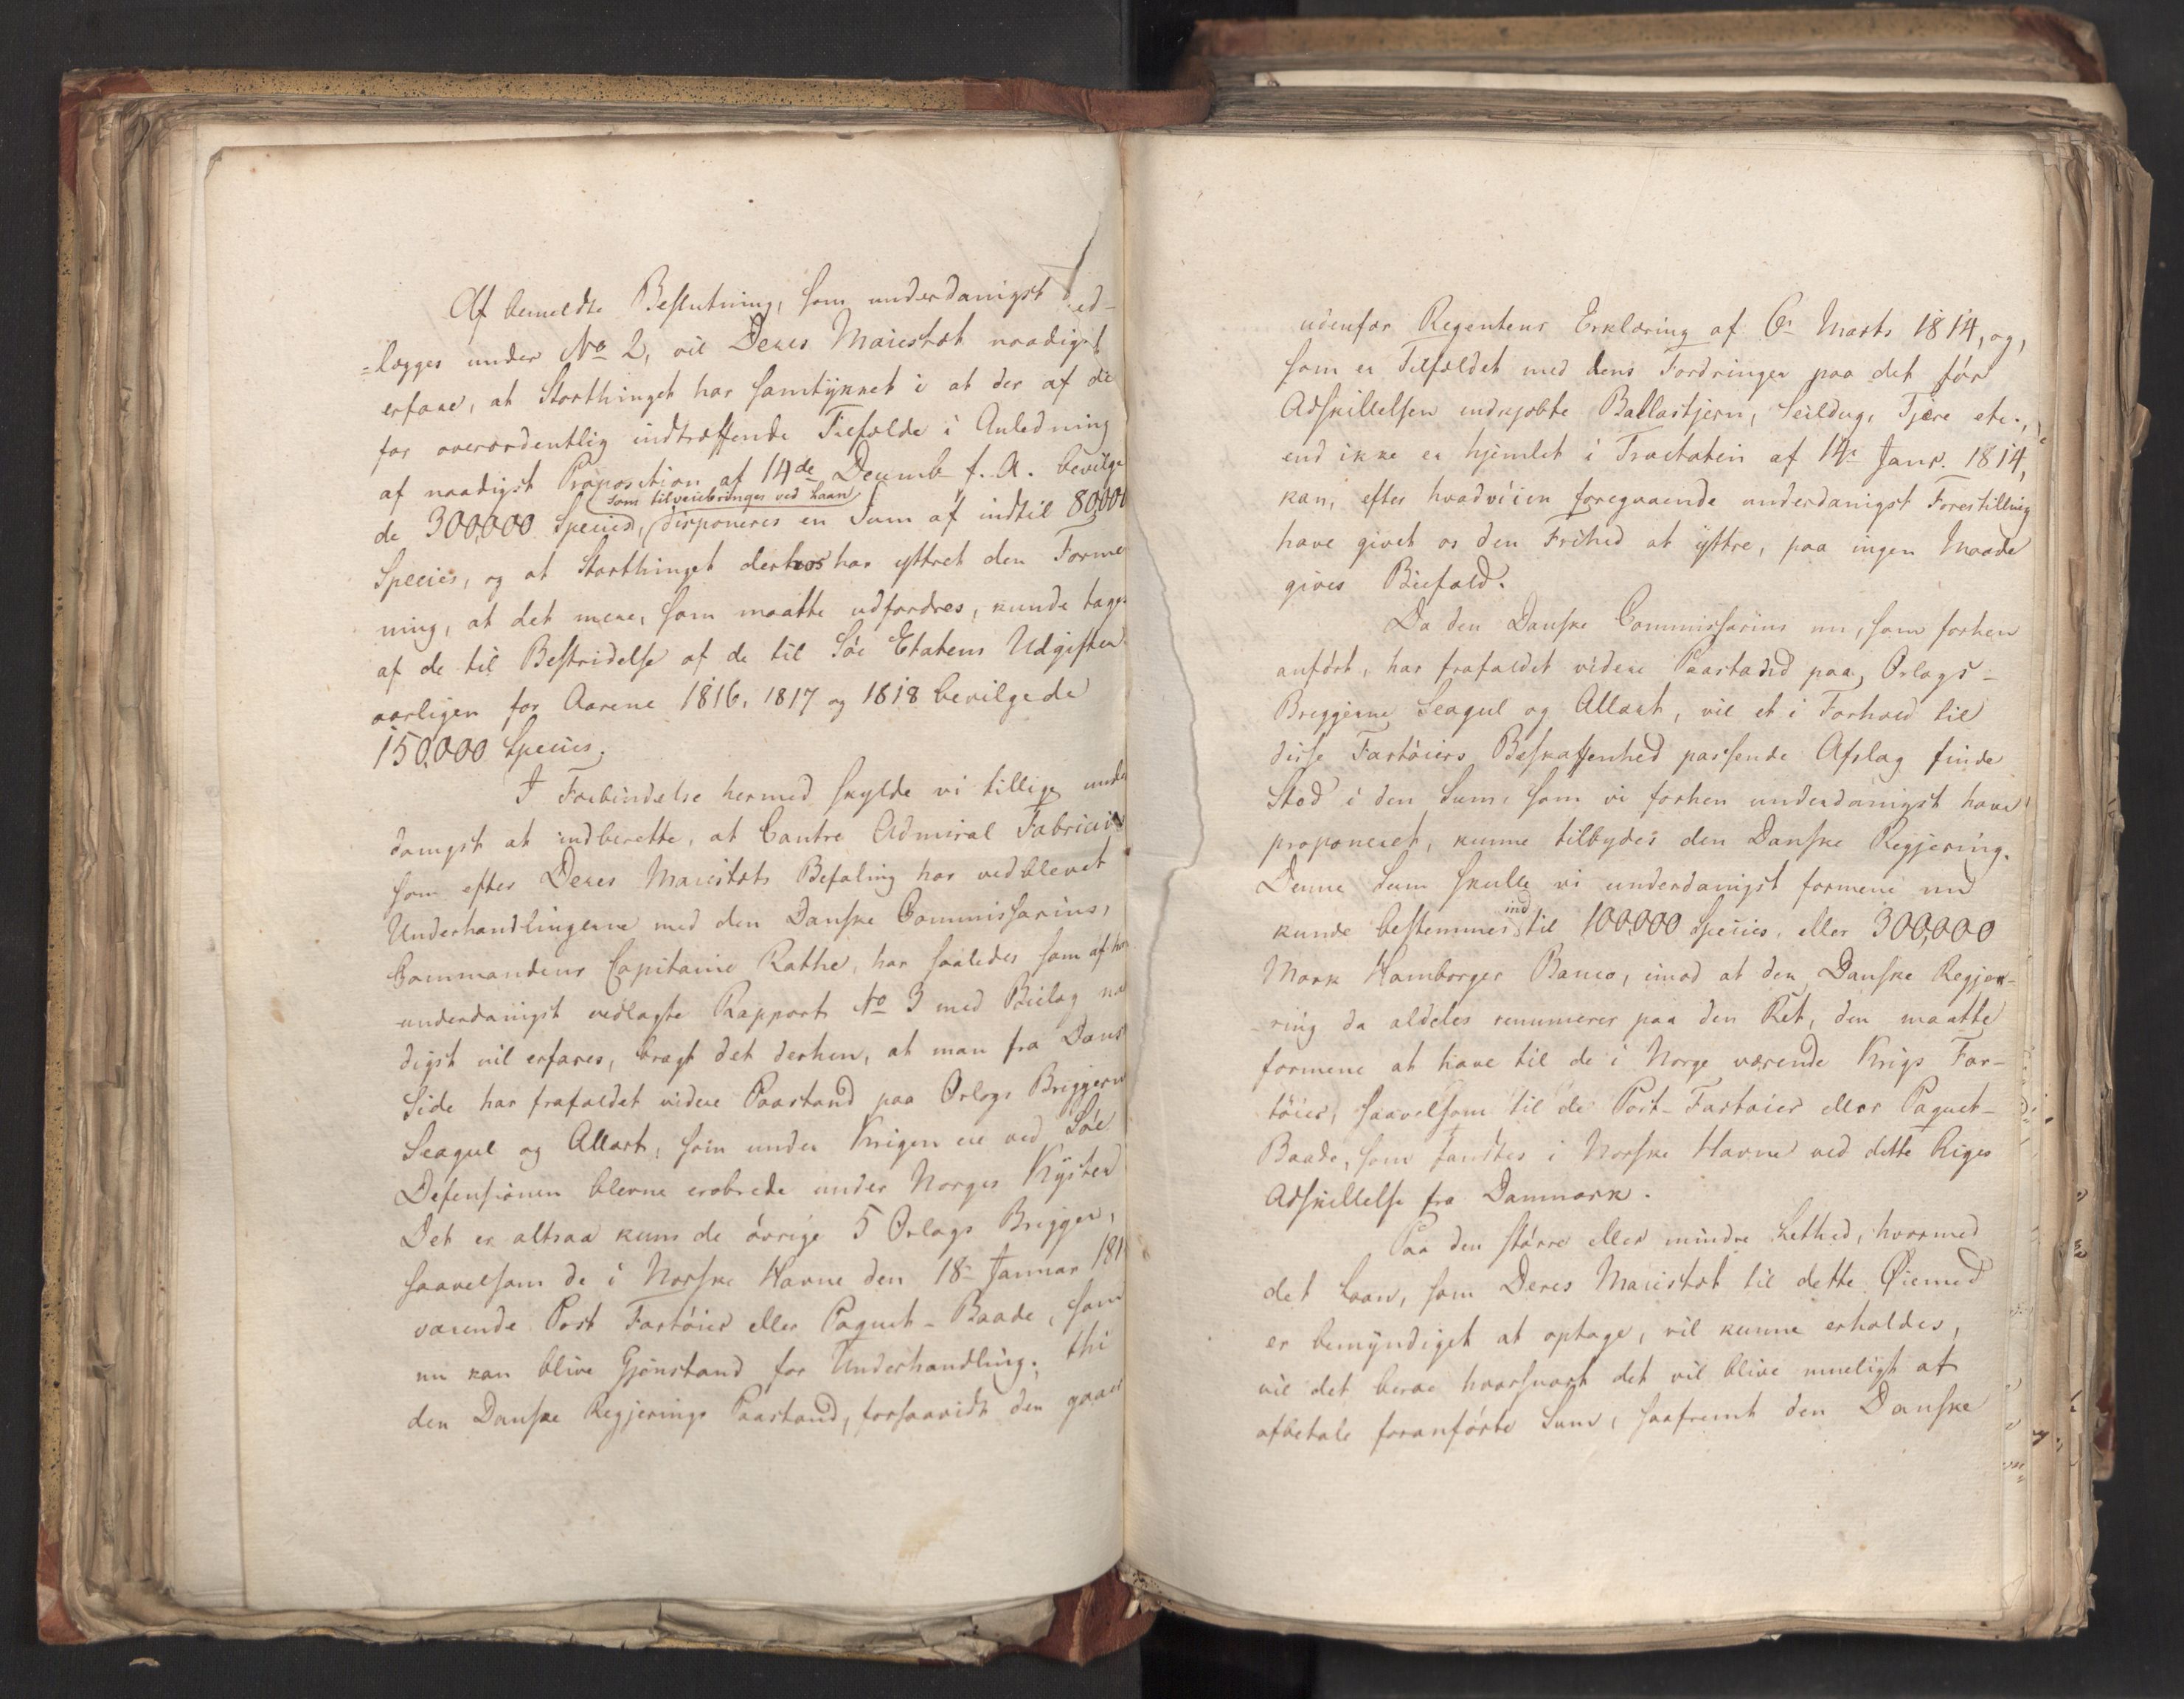 Af bemeldte Beslutning, som underdanigst ved-
=lægges under No 2, vil Deres Maiestæt naadigst
erfare, at Storthinget har samtykket i at der af de
for overordentlig indtræffende Tilfælde i Anledning
af naadigst Proposition af 14de Decemb. f. A. bevilge
som tilveiebringes ved Laan
de 300,000 Species, disponeres en Sum af indtil 80,000
Species, og at Storthinget derhos har yttret den Forme
ning, at det mere, som maatte udfordres, kunde tages
af de til Bestridelse af de til Søe Etatens Udgifter
aarligen for Aarene 1816, 1817 og 1818 bevilgede
150,000 Species.
I Forbindelse hermed skylde vi tillige under
danigst at indberette, at Contre Admiral Fabricius
som efter Deres Maiestæts Befaling har vedblevet
Underhandlingerne med den Danske Commissarius,
Commandeur Capitaine Rathe, har saaledes som af hos
underdanigst vedlagte Rapport No 3 med Bielag na
digst vil erfares, bragt det derhen, at man fra Dansk
Side har frafaldet videre Paastand paa Orlogs Briggerne
Seagul og Allart, som under Krigen ere ved Søe
Defensionen blevne erobrede under Norges Kyster
Det er altsaa kun de øvrige 5 Orlogs Brigger,
saavelsom de i Norske Havne den 18de Januar 181
værende Post Fartøier eller Paquet-Baade, som
nu kan blive Gjenstand for Underhandling; thi
den Danske Regjerings Paastand, forsaavidt den gaaer
udenfor Regentens Erklæring af 6te Marts 1814, og,
som er Tilfældet med dens Fordringer paa det før
Adskillelsen indkjøbte Ballastjern, Seildug, Tjære etc.,
end ikke er hjemlet i Tractaten af 14de Janr. 1814,
kan, efter hvad vi i en foregaaende underdanigst Forestilling
have givet os den Frihed at yttre, paa ingen Maade
gives Biefald.
Da den Danske Commissarius nu, som forhen
anført, har frafaldet videre Paastand paa Orlogs-
Briggerne Seagul og Allart, vil et i Forhold til
disse Fartøiers Beskaffenhed passende Afslag finde
Sted i den Sum, som vi forhen underdanigst have
proponeret, kunne tilbydes den Danske Regjering.
Denne Sum skulle vi underdanigst formene nu
ind
kunde bestemmes til 100,000 Species, eller 300,000
Mark Hamborger Banco, imod at den Danske Regje-
ring da aldeles renuncerer paa den Ret, den maatte
formene at have til de i Norge værende Krigs Far-
tøier, saavelsom til de Post-Fartøier eller Paquet-
Baade, som fandtes i Norske Havne ved dette Riges
Adskillelse fra Danmark.
Paa den større eller mindre Lethed, hvormed
det Laan, som Deres Maiestæt til dette Øiemed
er bemyndiget at optage, vil kunne erholdes,
vil det beroe hvorsnart det vil blive mueligt at
afbetale foranførte Sum, saafremt den Danske